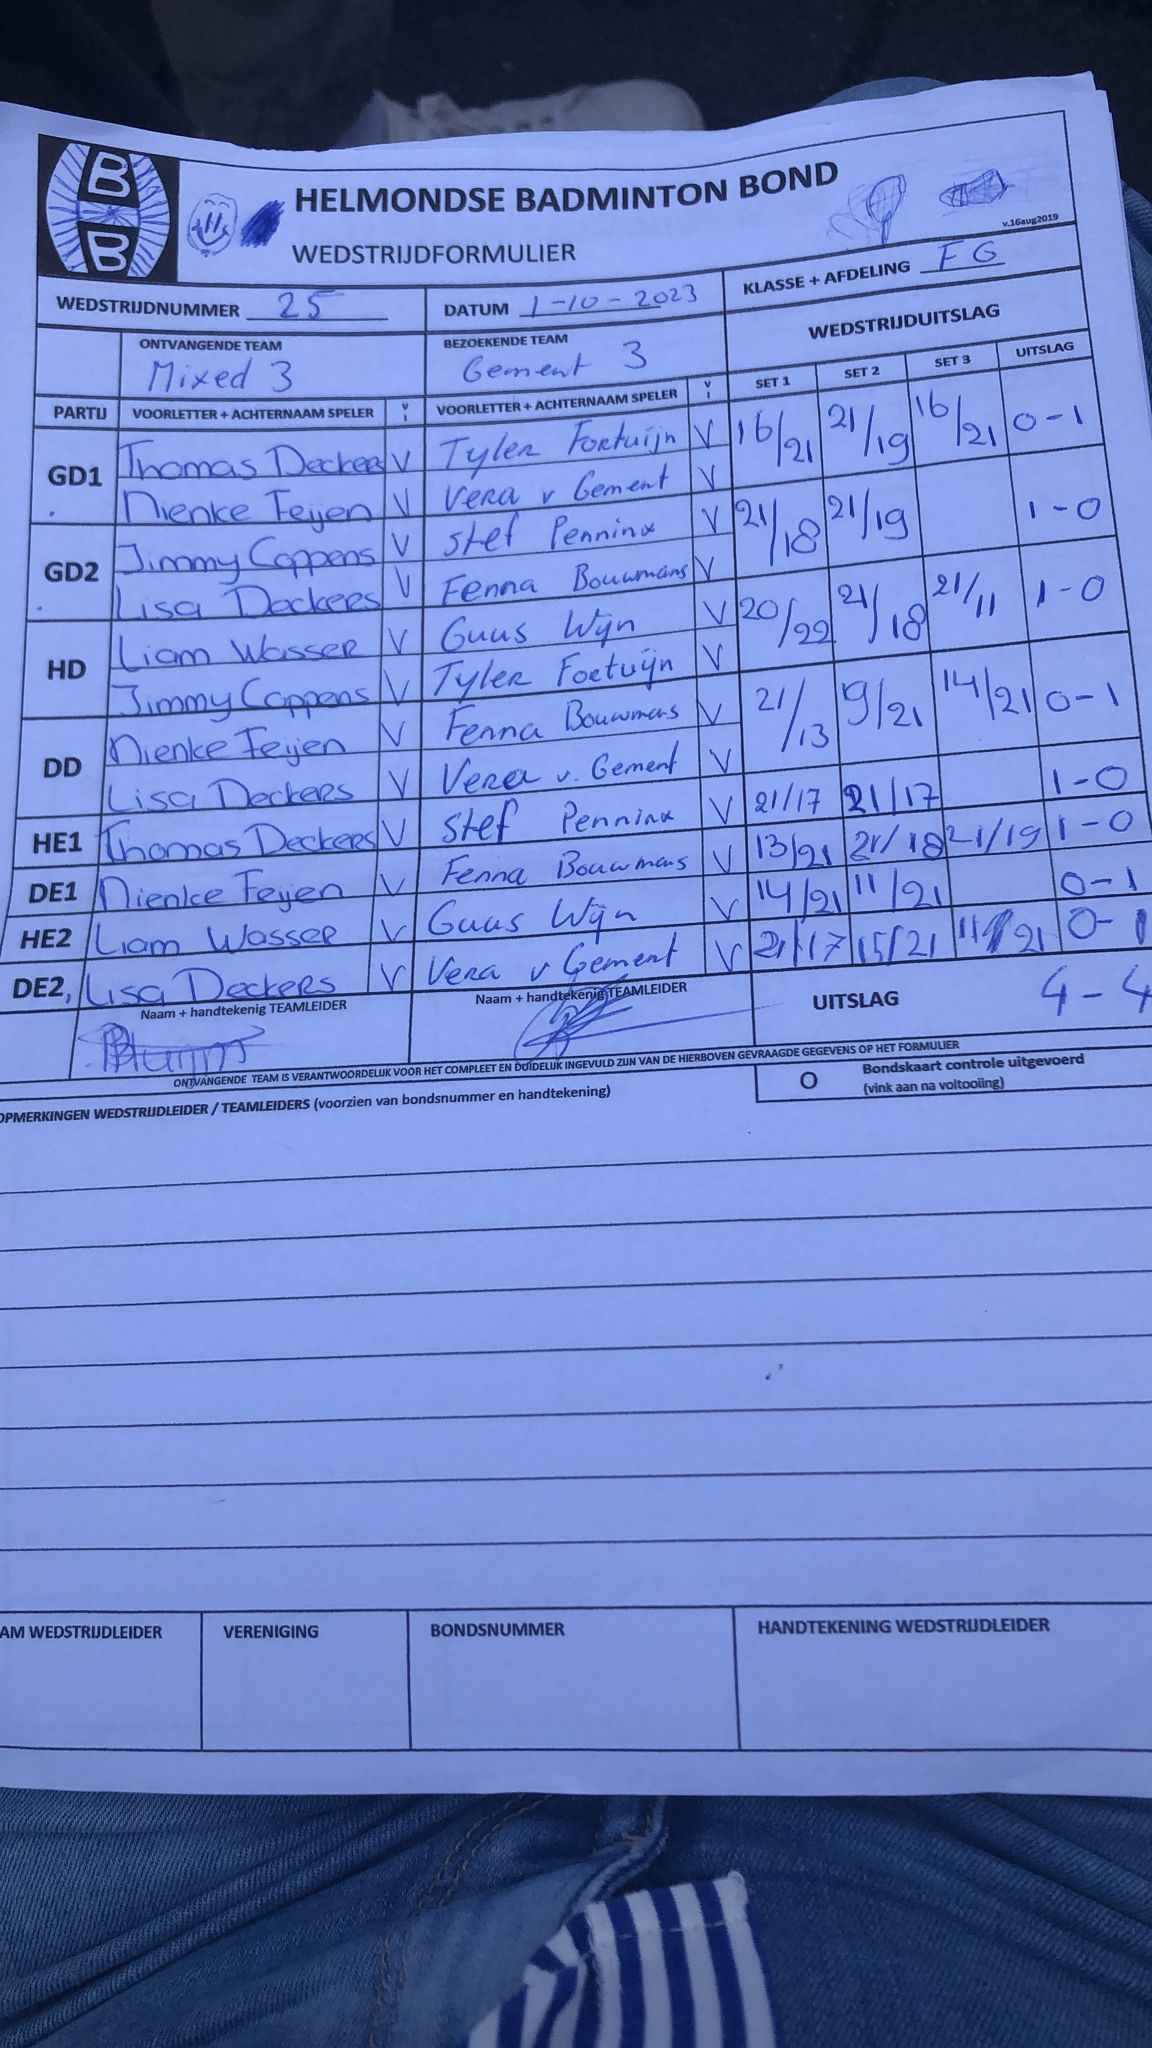 B
B
HELMONDSE BADMINTON BOND
WEDSTRIJDFORMULIER
v.16aug2019
WEDSTRIJDNUMMER 25 DATUM 1-10-2023 KLASSE + AFDELING FG
ONTVANGENDE TEAM BEZOEKENDE TEAM WEDSTRIJDUITSLAG
Mixed 3 Gement 3
PARTIJ VOORLETTER + ACHTERNAAM SPELER V I VOORLETTER + ACHTERNAAM SPELER V I SET 1 SET 2 SET 3 UITSLAG
GD1 Thomas Deckers V Tyler Fortuijn V 16/21 21/19 16/21 0-1
Nienke Feijen V Vera v Gement V
GD2 Jimmy Coppens V Stef Penninx V 21/18 21/19 1-0
Lisa Deckers V Fenna Bouwmans V
HD Liam Wasser V Guus Wijn V 20/22 21/18 21/11 1-0
Jimmy Coppens V Tyler Fortuijn V
DD Nienke Feijen V Fenna Bouwmans V 21/13 19/21 14/21 0-1
Lisa Deckers V Vera v. Gement V
HE1 Thomas Deckers V Stef Penninx V 21/17 21/17 1-0
DE1 Nienke Feijen V Fenna Bouwmans V 13/21 21/18 21/19 1-0
HE2 Liam Wasser V Guus Wijn V 14/21 11/21 0-1
DE2, Lisa Deckers V Vera v Gement V 21/17 15/21 21 0-1
Naam + handtekenig TEAMLEIDER Naam + handtekenig TEAMLEIDER UITSLAG 4-4
ONTVANGENDE TEAM IS VERANTWOORDELIJK VOOR HET COMPLEET EN DUIDELIJK INGEVULD ZIJN VAN DE HIERBOVEN GEVRAAGDE GEGEVENS OP HET FORMULIER
O Bondskaart controle uitgevoerd
(vink aan na voltooiing)
OPMERKINGEN WEDSTRIJDLEIDER / TEAMLEIDERS (voorzien van bondsnummer en handtekening)
AM WEDSTRIJDLEIDER VERENIGING BONDSNUMMER HANDTEKENING WEDSTRIJDLEIDER